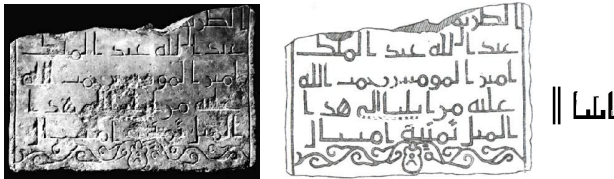 الطريق
عبد الله عبد الملك
امير المومنين رحمت الله
عليه من ايليا الى هذا
الميل ثمنية اميال
الطريق
عبد الله عبد الملك
امير المومنين رحمت الله
عليه من ايليا الى هذا
الميل ثمنية اميال
ايليا